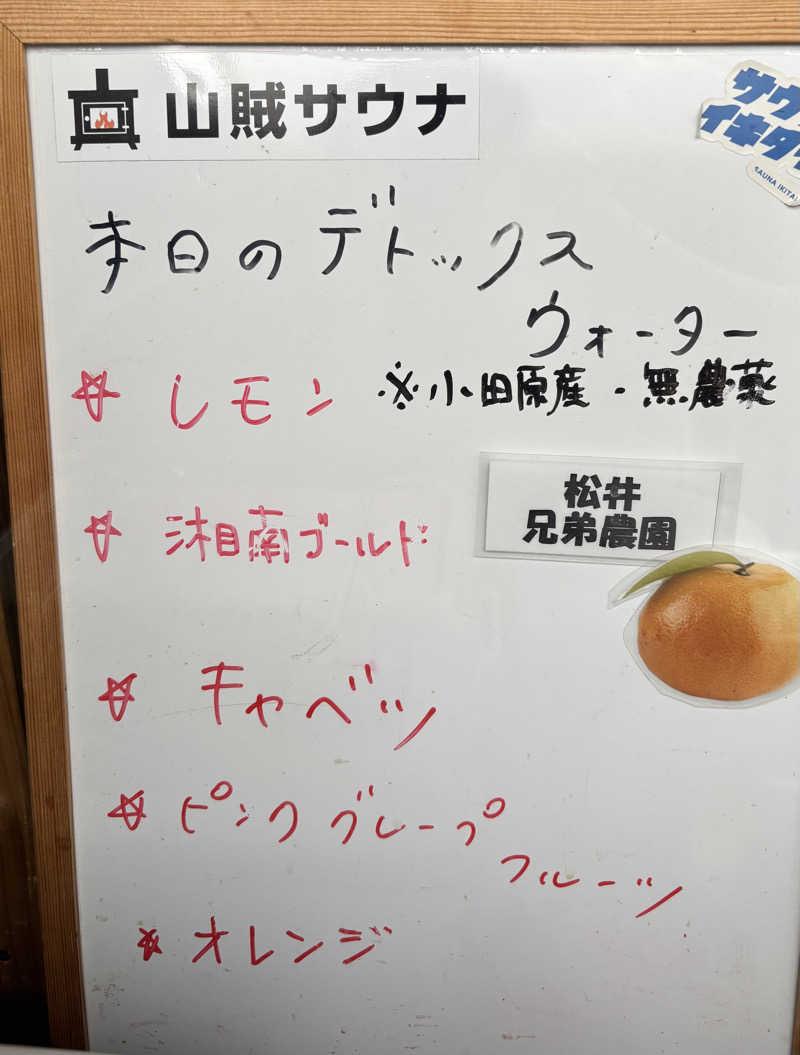 山賊サウナ
サウ
イキタ
SAUNA IKITA
本日のデトックス
ウォーター
☆ レモン ※小田原産・無農薬
松井
兄弟農園
☆ 湘南ゴールド
☆ キャベツ
☆ ピンクグレープ
フルーツ
☆ オレンジ